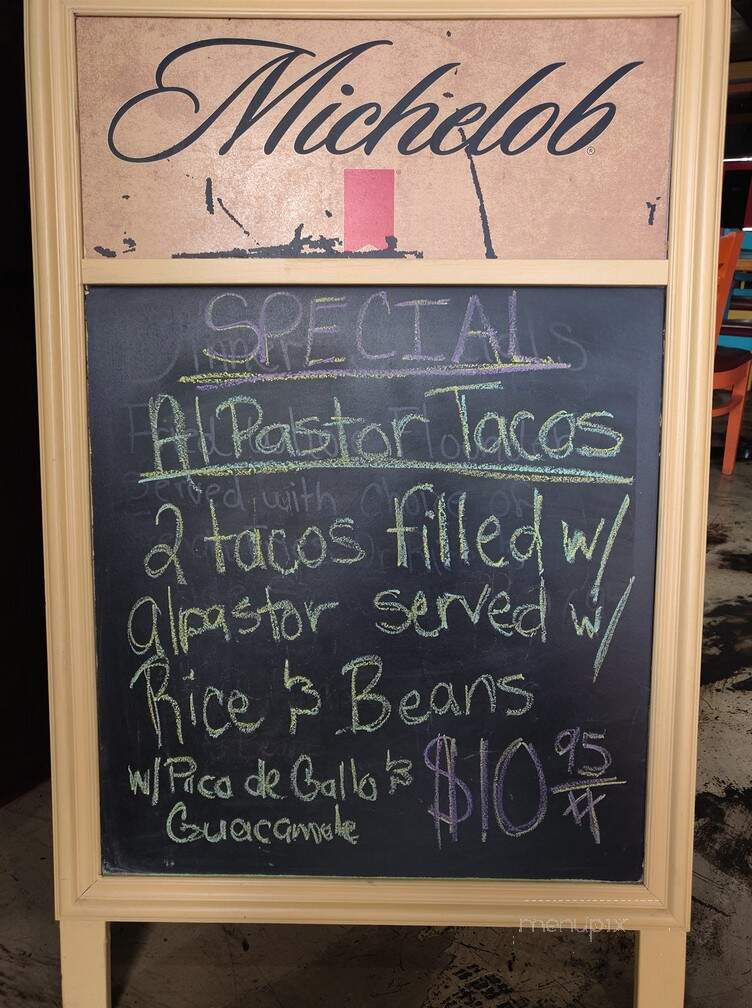 Michelob
SPECIAL
Al Pastor Tacos
2 tacos filled w/
alpastor served w/
Rice & Beans
w/Pico de Gallo &
Guacamole
$10 95
menupix